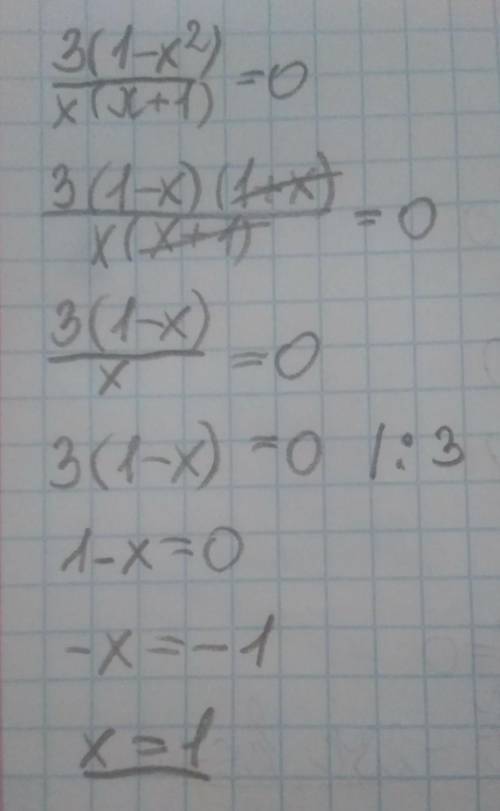 3(1-x²)
x(x+1) =0
3(1-x)(1+x)
x(x+1) =0
3(1-x)
x =0
3(1-x)=0 /:3
1-x=0
-x=-1
x=1